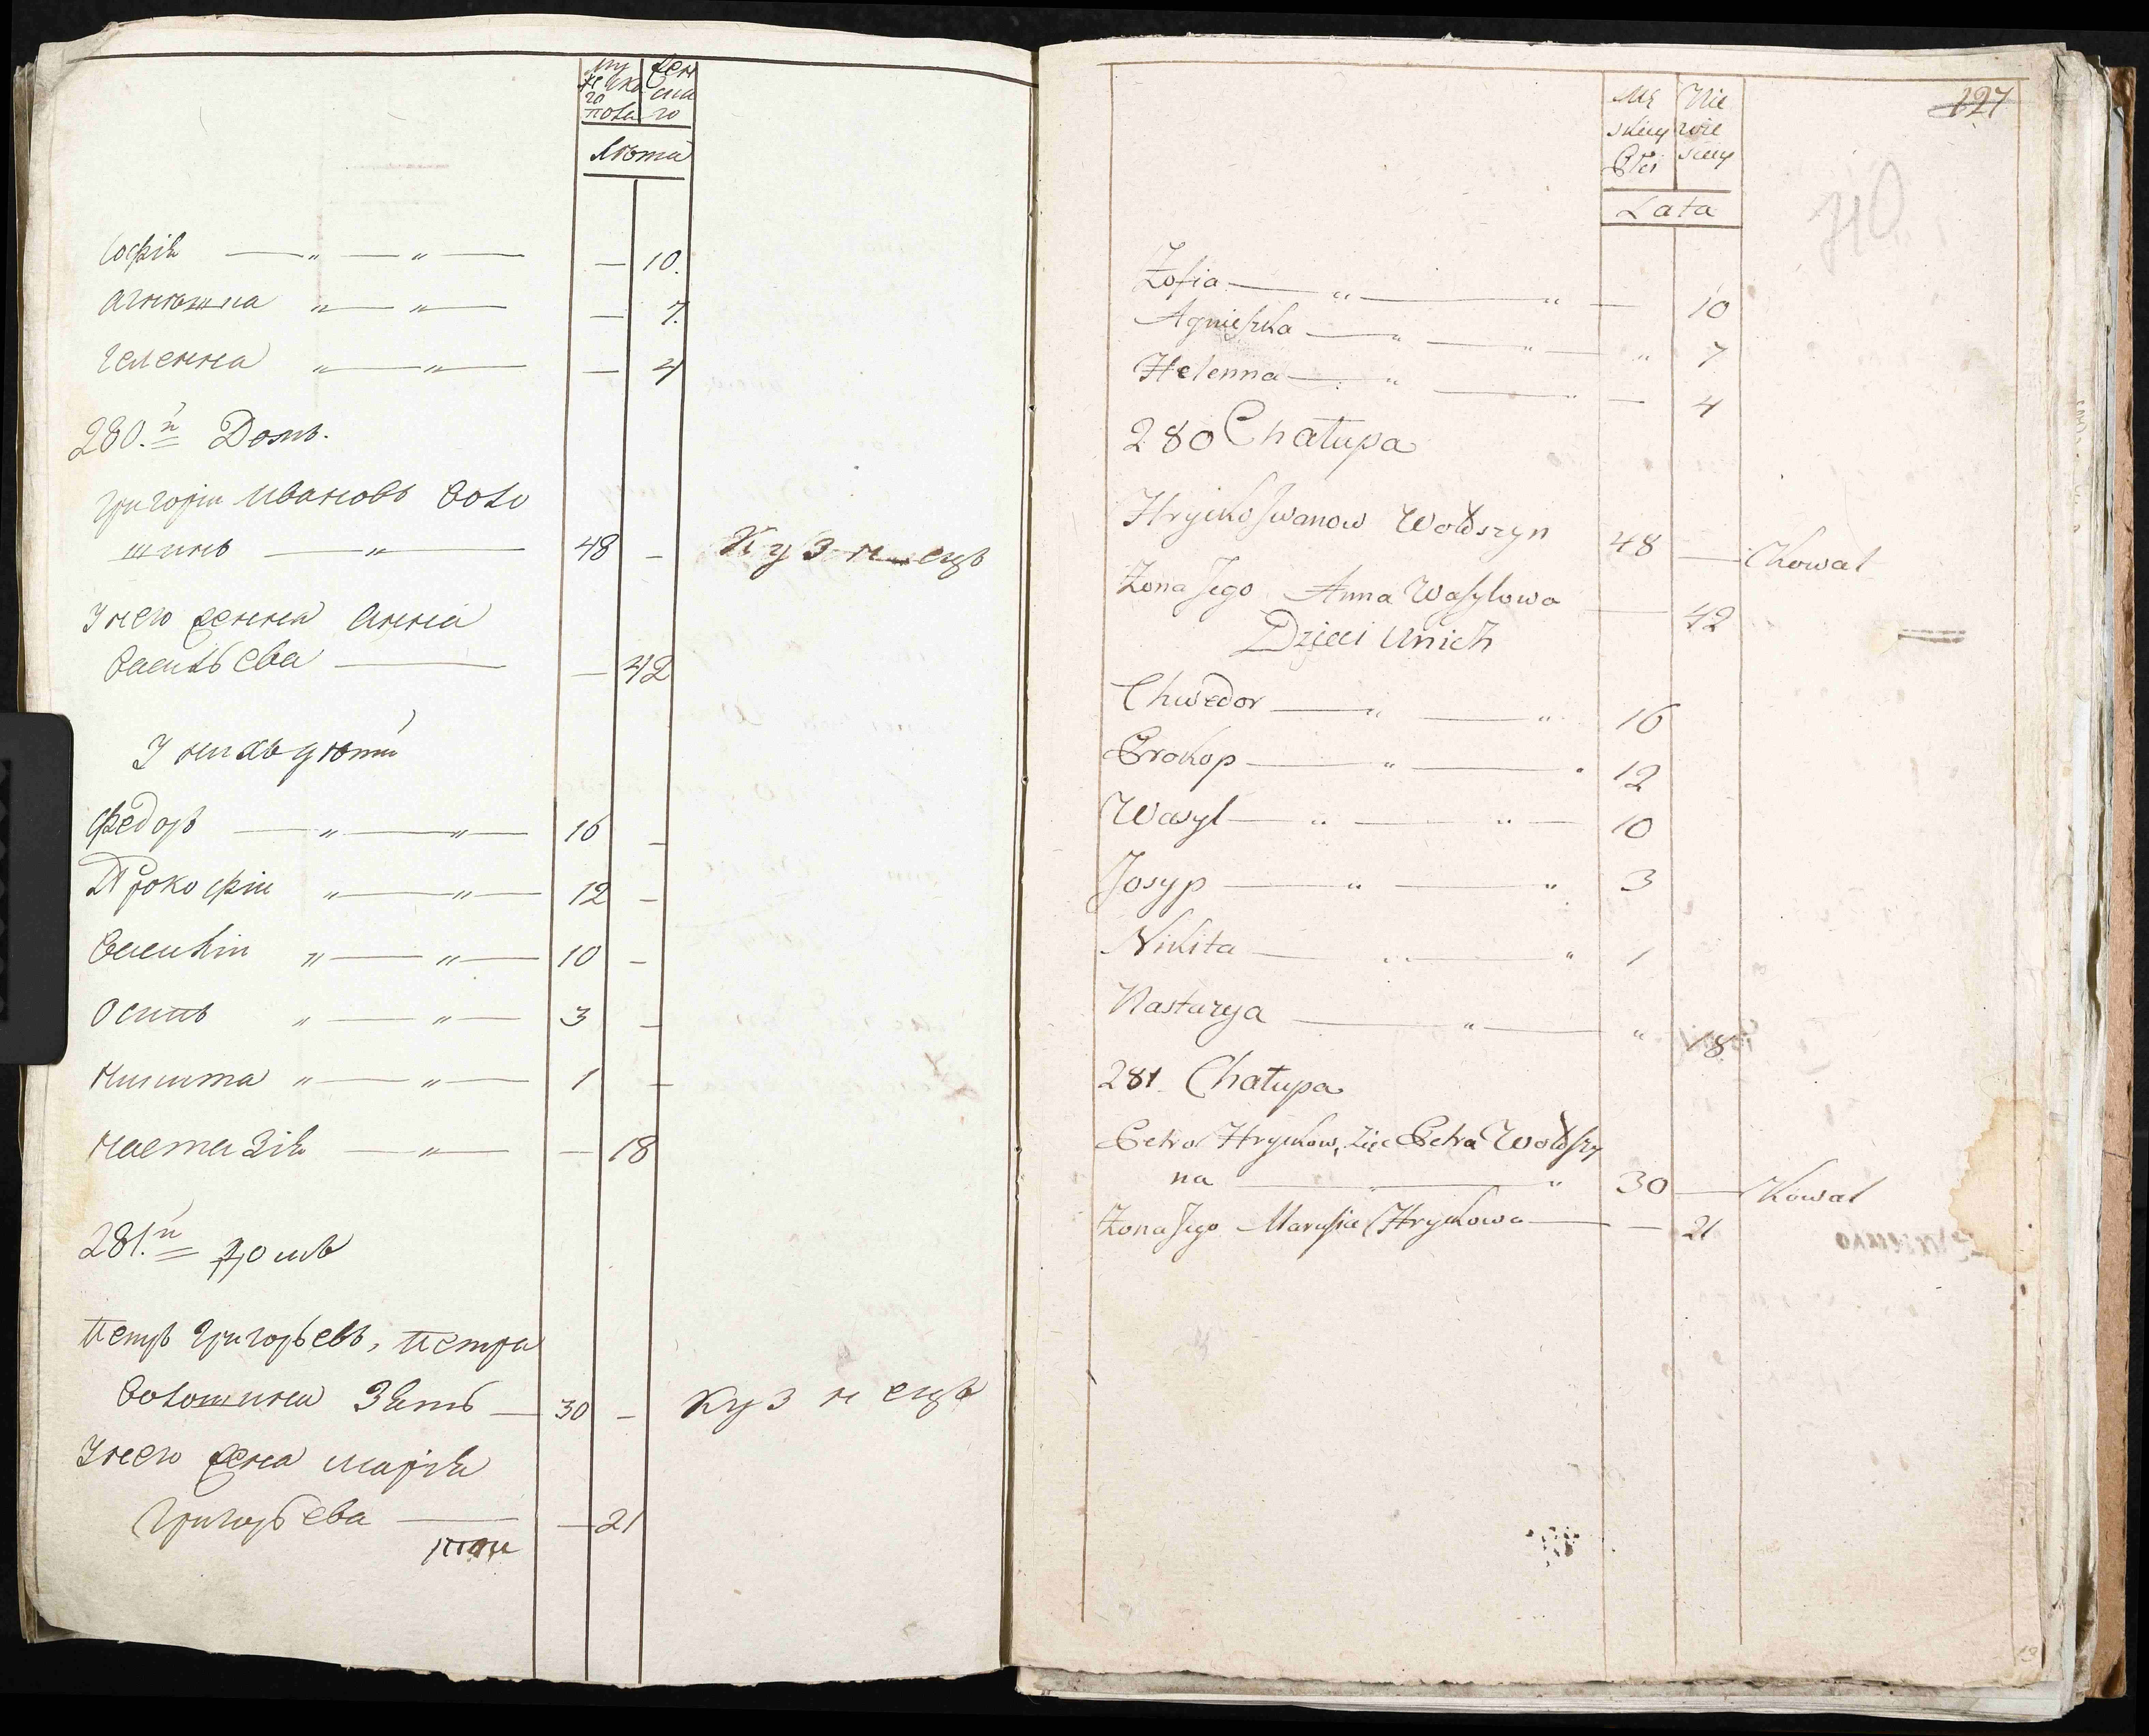 му жеска го пола
жен ска го
Лѣта
Софія — „ — „ — — 10.
Агнюшка „ — „ — — 7.
Геленна „ — „ — — 4
280.й Домъ.
Григорій Ивановъ Воло
шинъ — „ — 48 — Кузнецъ
У него женна Анна
Васильева — — 42
У нихъ дѣти
Федоръ — „ — „ — 16 —
Прокофій „ — „ — 12 —
Василій „ — „ — 10 —
Осипъ „ — „ — 3 —
Никита „ — „ — 1 —
Настазія — „ — — 18
281.й Домъ
Петръ Григорьевъ, Петра
Волошина Зять — 30 — Кузнецъ
У него жена Марія
Григорьева — — 21
127
Mę skiey Płci
Nie wie sciey
Lata
40
Zofia — „ — „ — 10
Agnieszka — „ — „ — „ 7
Helenna — „ — „ — 4
280 Chałupa
Hryćko Iwanow Wołoszyn 48 — Kowal
Żona Jego Anna Wasylowa — 42
Dzieci Unich
Chwedor — „ — „ 16
Prokop — „ — „ 12
Wasyl — „ — „ — 10
Josyp — „ — „ 3
Nikita — „ — „ 1
Nastazya — „ — „ 18
281 Chałupa
Petro Hryćkow, Zięć Petra Wołoszy
na — „ 30 — Kowal
Żona Jego Marysia Hryćkowa — — 21